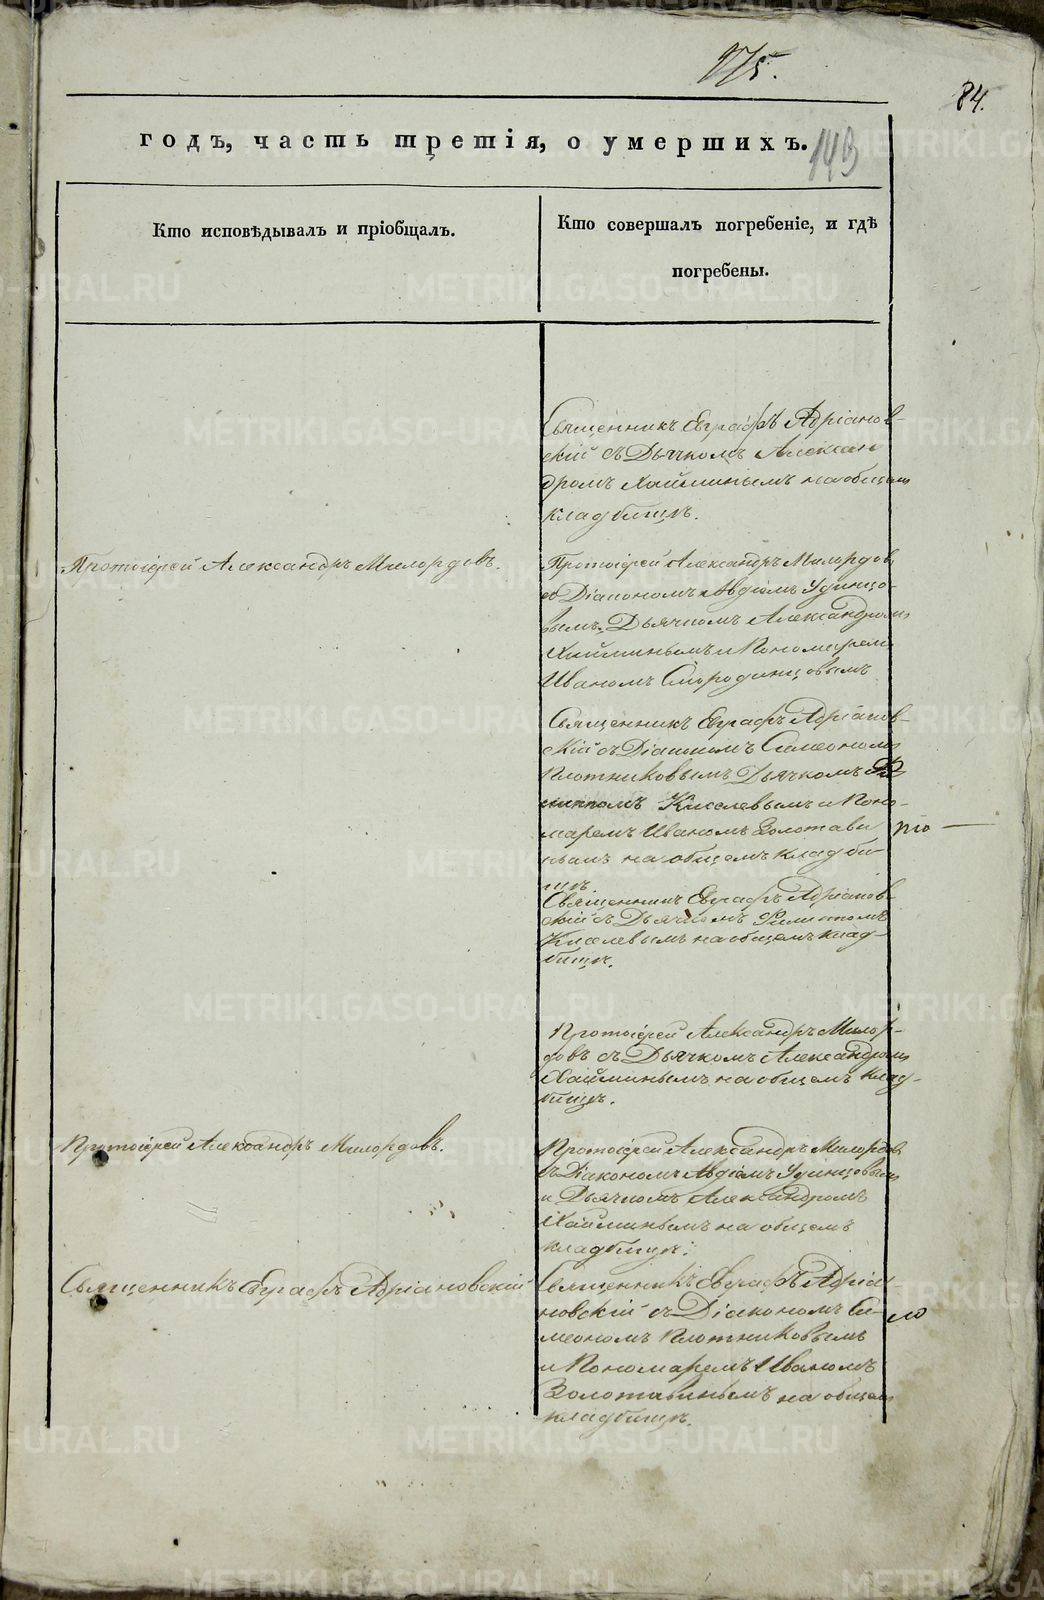 175.
84.
годъ, часть третія, о умершихъ.
143
Кто исповѣдывалъ и пріобщалъ.
Кто совершалъ погребеніе, и гдѣ
погребены.
Священникъ Евграфъ Адріанов-
скій съ Дьячкомъ Алексан
дромъ Хайминымъ на общемъ
кладбищѣ.
Протоіерей Александръ Милордовъ.
Протоіерей Александръ Милордовъ
съ Діакономъ Авдіемъ Удинцо-
вымъ, Дьячкомъ Александромъ
Хайминымъ и Пономаремъ
Иваномъ Смородинцовымъ
Священникъ Евграфъ Адріанов-
скій съ Діакономъ Симеономъ
Плотниковымъ Дьячкомъ Фи
липпомъ Киселевымъ и Поно-
маремъ Иваномъ Золотави
нымъ на общемъ кладби-
щѣ
Священникъ Евграфъ Адріанов-
скій съ Дьячкомъ Филиппомъ
Киселевымъ на общемъ клад-
бищѣ.
Протоіерей Александръ Милор-
довъ съ Дьячкомъ Александромъ
Хайминымъ на общемъ клад-
бищѣ.
Протоіерей Александръ Милордовъ.
Протоіерей Александръ Милордовъ
съ Діакономъ Авдіемъ Удинцовымъ
и Дьячкомъ Александромъ
Хайминымъ на общемъ
кладбищѣ.
Священникъ Евграфъ Адріановскій
Священникъ Евграфъ Адріа
новскій съ Діакономъ Си-
меономъ Плотниковымъ
и Пономаремъ Иваномъ
Золотавинымъ на общемъ
кладбищѣ.
METRIKI.GASO-URAL.RU